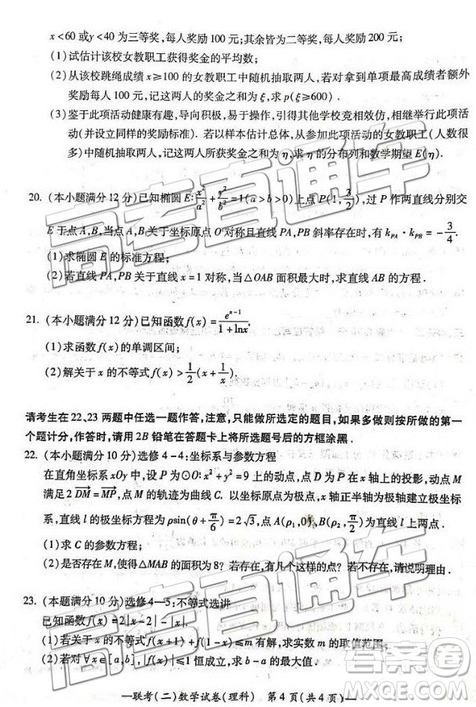 x<60或y<40为三等奖，每人奖励100元；其余皆为二等奖，每人奖励200元；
(1)试估计该校女教职工获得奖金的平均数；
(2)从该校跳绳成绩x≥100的女教职工中随机抽取两人，若对拿到单项最高成绩者额外
奖励每人100元，记这两人的奖金之和为ξ，求p(ξ≥600)．
(3)鉴于此项活动健康有趣，导向积极，易于操作，引得其他学校竞相效仿，相继举行此项活动
(并设立同样的奖励标准)．若以样本估计总体，从参加此项活动的女教职工(人数很多)
中随机抽取两人，记这两人所获奖金之和为η，求η的分布列和数学期望E(η)．
20．(本小题满分12分)已知椭圆E:x²/a²+y²/b²=1(a>b>0)上点P(1,3/2)，分别交
E于点A,B，当点A,B关于坐标原点O对称且直线PA,PB斜率存在时，有k_PA·k_PB=-3/4．
(1)求椭圆E的标准方程；
(2)若直线PA,PB关于直线x=1对称，当△OAB面积最大时，求直线AB的方程．
21．(本小题满分12分)已知函数f(x)=e^(x-1)/(1+lnx)．
(1)求函数f(x)的单调区间；
(2)解关于x的不等式f(x)>1/2(x+1/x)
请考生在22,23两题中任选一题作答，注意，只能做所选定的题目，如果多做则按所做的第一
个题计分，作答时，请用2B铅笔在答题卡上将所选题号后的方框涂黑．
22．(本题满分10分)选修4-4：坐标系与参数方程
在直角坐标系xOy中，设P为⊙O:x²+y²=9上的动点，点D为P在x轴上的投影，动点M
满足2DM=MP，点M的轨迹为曲线C．以坐标原点为极点，x轴正半轴为极轴建立极坐标
系，直线l的极坐标方程为ρsin(θ+π/6)=2√3，点A(ρ₁,0)，B(ρ₂,π/2)为直线l上两点．
(1)求C的参数方程；
(2)是否存在M，使得△MAB的面积为8？若存在，有几个这样的点？若不存在，请说明理由．
23．(本题满分10分)选修4-5：不等式选讲
已知函数f(x)=|2x|-2
(1)若关于x的不等式f(x+1)+f(x)<m有解，求实数m的取值范围．
(2)若对∀x∈[a,b]，总有f(x)≤x成立，求b-a的最大值．
—联考(二)数学试卷(理科) 第4页(共4页)—
高考直通车
高考直通车
答案圈
MXQE.COM